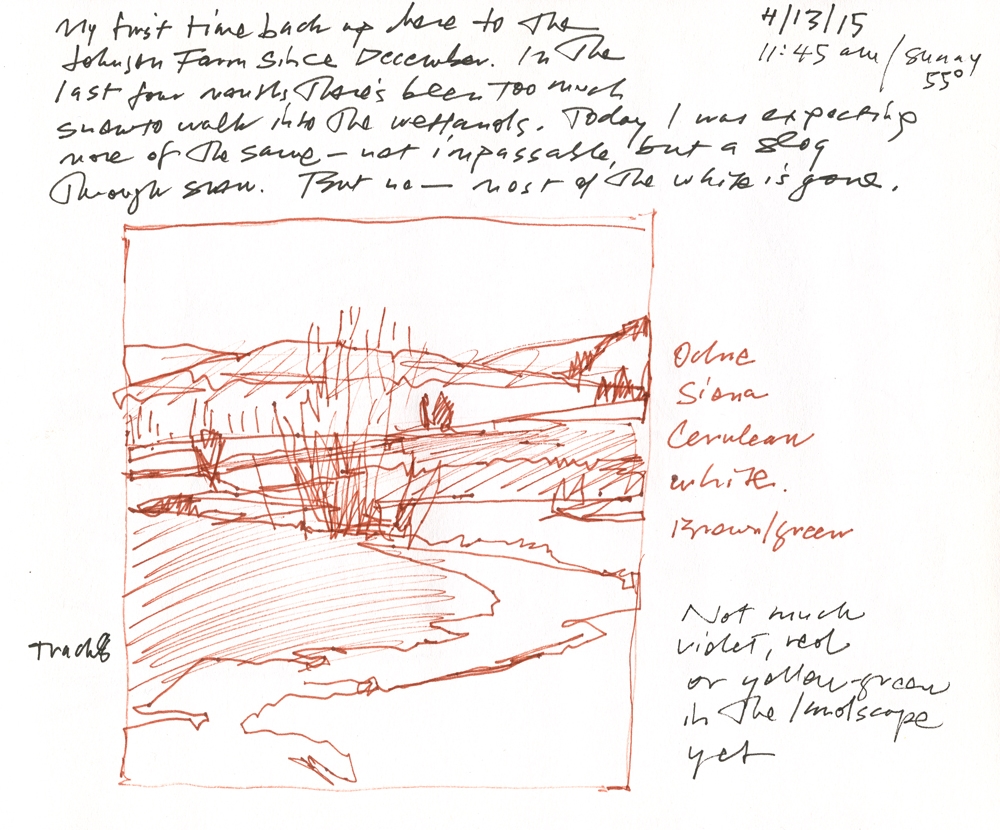 My first time back up here to the
Johnson Farm since December. In the
last four months, there's been too much
snow to walk into the wetlands. Today I was expecting
more of the same – not impassable, but a slog
through snow. But no – most of the white is gone.
4/13/15
11:45 am / sunny
55°
Ochre
Siena
Cerulean
white.
Brown/green
Tracks
Not much
violet, red
or yellow-green
in the landscape
yet